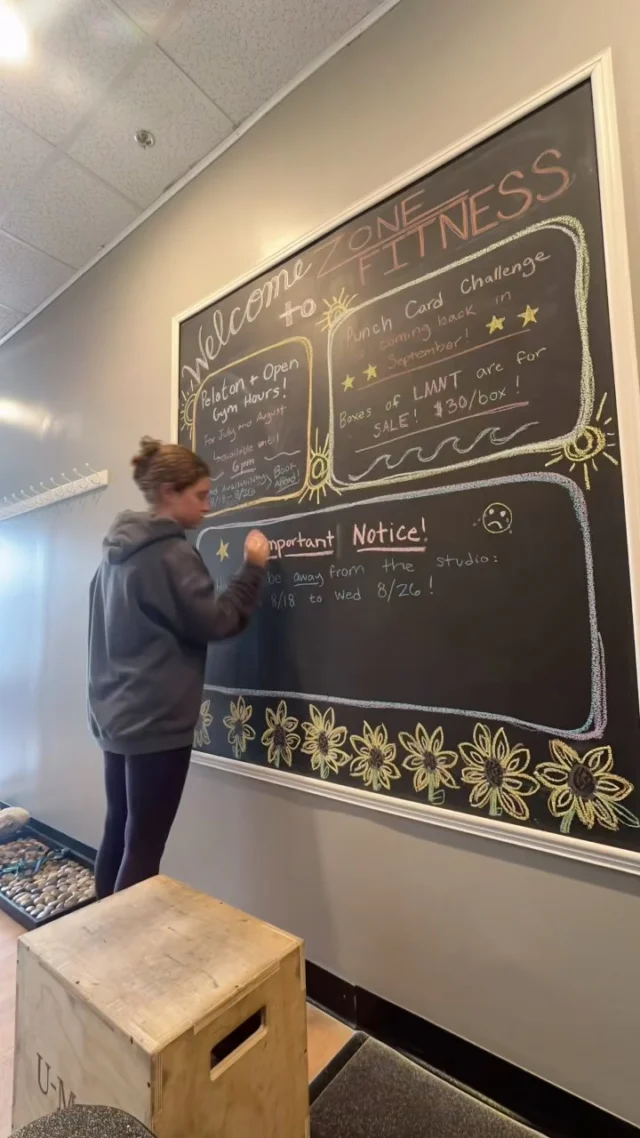 Welcome
to
ZONE
FITNESS
Peloton + Open
Gym Hours!
For July and August
until
6pm
8/18 - 8/26
Book
Punch Card Challenge
coming back in
September!
Boxes of LMNT are for
SALE! $30/box!
Important Notice!
be away from the studio:
8/18 to Wed 8/26!
U-M